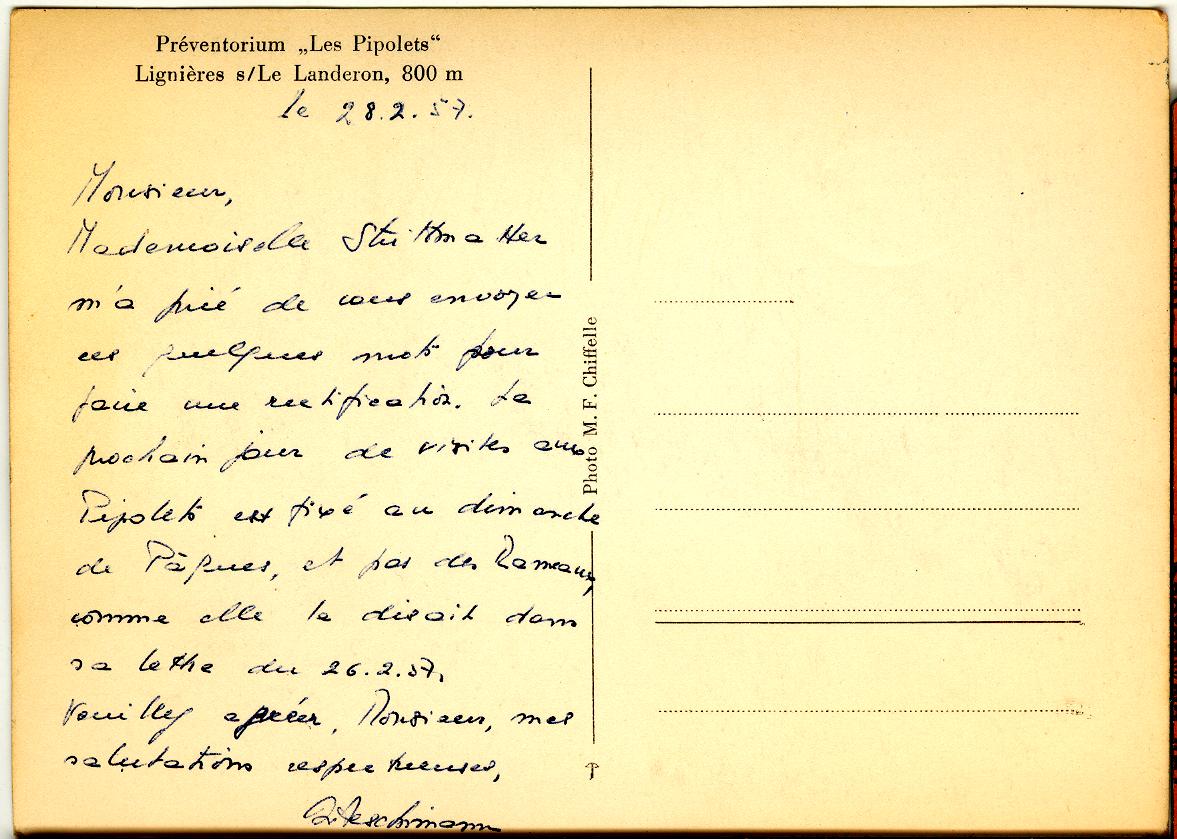 Préventorium „Les Pipolets“
Lignières s/Le Landeron, 800 m
le 28.2.57.
Monsieur,
Mademoiselle Strittmatter
m'a prié de vous envoyer
ces quelques mots pour
faire une rectification. Le
prochain jour de visites aux
Pipolets est fixé au dimanche
de Pâques, et pas des Rameaux,
comme elle le disait dans
sa lettre du 26.2.57.
Veuillez agréer, Monsieur, mes
salutations respectueuses,
Photo M. F. Chiffelle